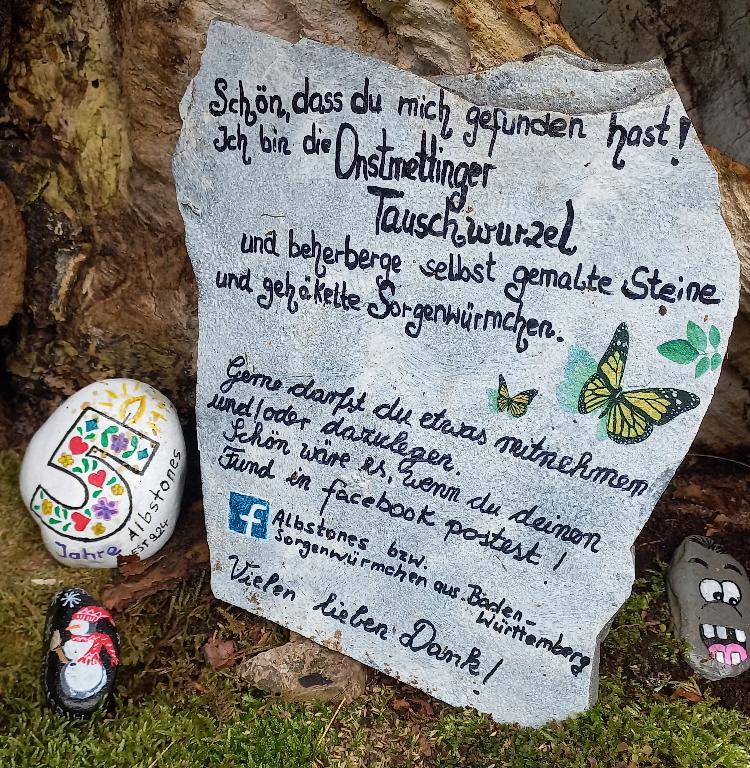 Schön, dass du mich gefunden hast!
Ich bin die Onstmettinger
Tauschwurzel
und beherberge selbst gemalte Steine
und gehäkelte Sorgenwürmchen.
Gerne darfst du etwas mitnehmen
und/oder dazulegen.
Schön wäre es, wenn du deinen
Fund in facebook postest!
f Albstones bzw.
Sorgenwürmchen aus Baden-
Württemberg
Vielen lieben Dank!
5
Jahre
Albstones